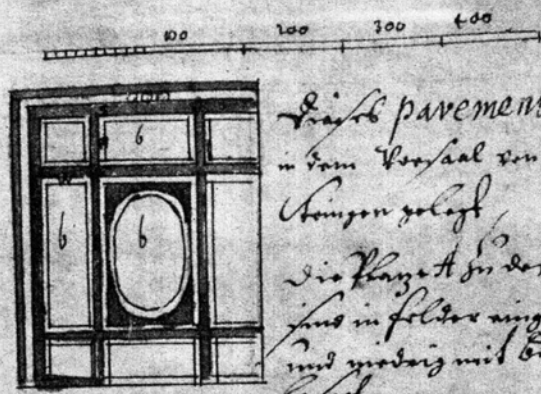 100 200 300 400
6
6 6
Dieses pavement
in dem Vorsaal von
Steinen gelegt,
die Plaze A zu de
sind in felder eing
und niedrig mit